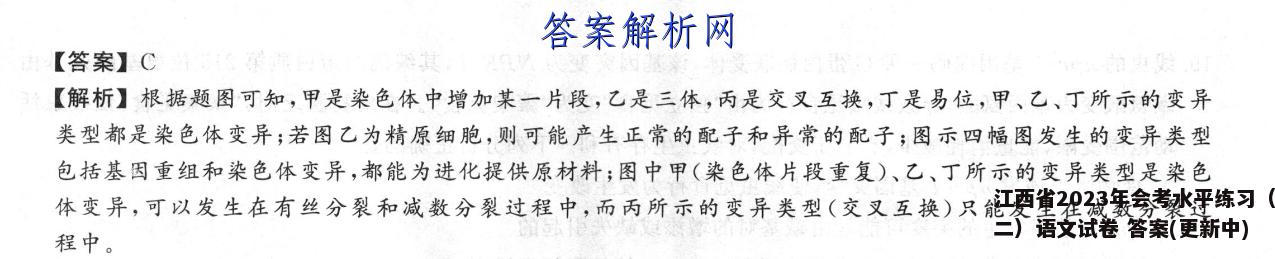 答案解析网
【答案】C
【解析】根据题图可知,甲是染色体中增加某一片段,乙是三体,丙是交叉互换,丁是易位,甲、乙、丁所示的变异
类型都是染色体变异;若图乙为精原细胞,则可能产生正常的配子和异常的配子;图示四幅图发生的变异类型
包括基因重组和染色体变异,都能为进化提供原材料;图中甲(染色体片段重复)、乙、丁所示的变异类型是染色
体变异,可以发生在有丝分裂和减数分裂过程中,而丙所示的变异类型(交叉互换)只能发生在减数分裂过
程中。
江西省2023年会考水平练习（
二）语文试卷 答案(更新中)